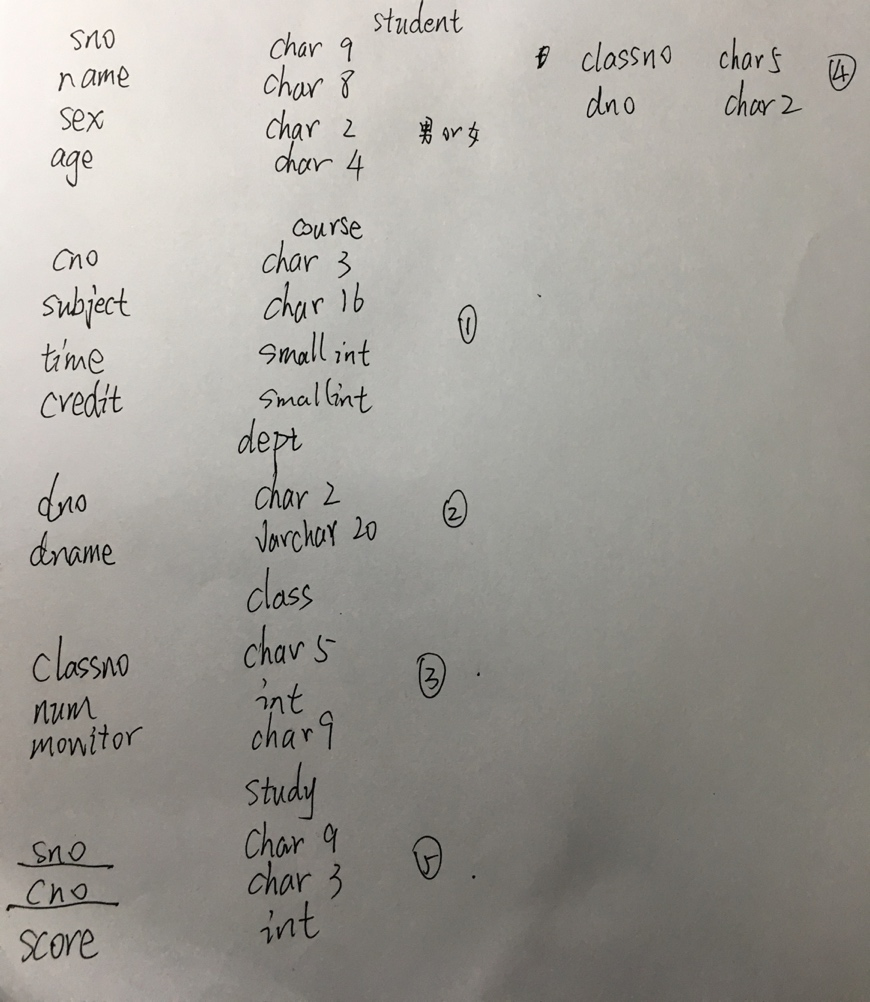 student
sno char 9
name char 8
sex char 2 男 or 女
age char 4
classno char 5 ④
dno char 2
course
cno char 3
subject char 16 ①
time smallint
credit smallint
dept
dno char 2 ②
dname varchar 20
class
classno char 5 ③
num int
monitor char 9
study
sno char 9 ⑤
cno char 3
score int